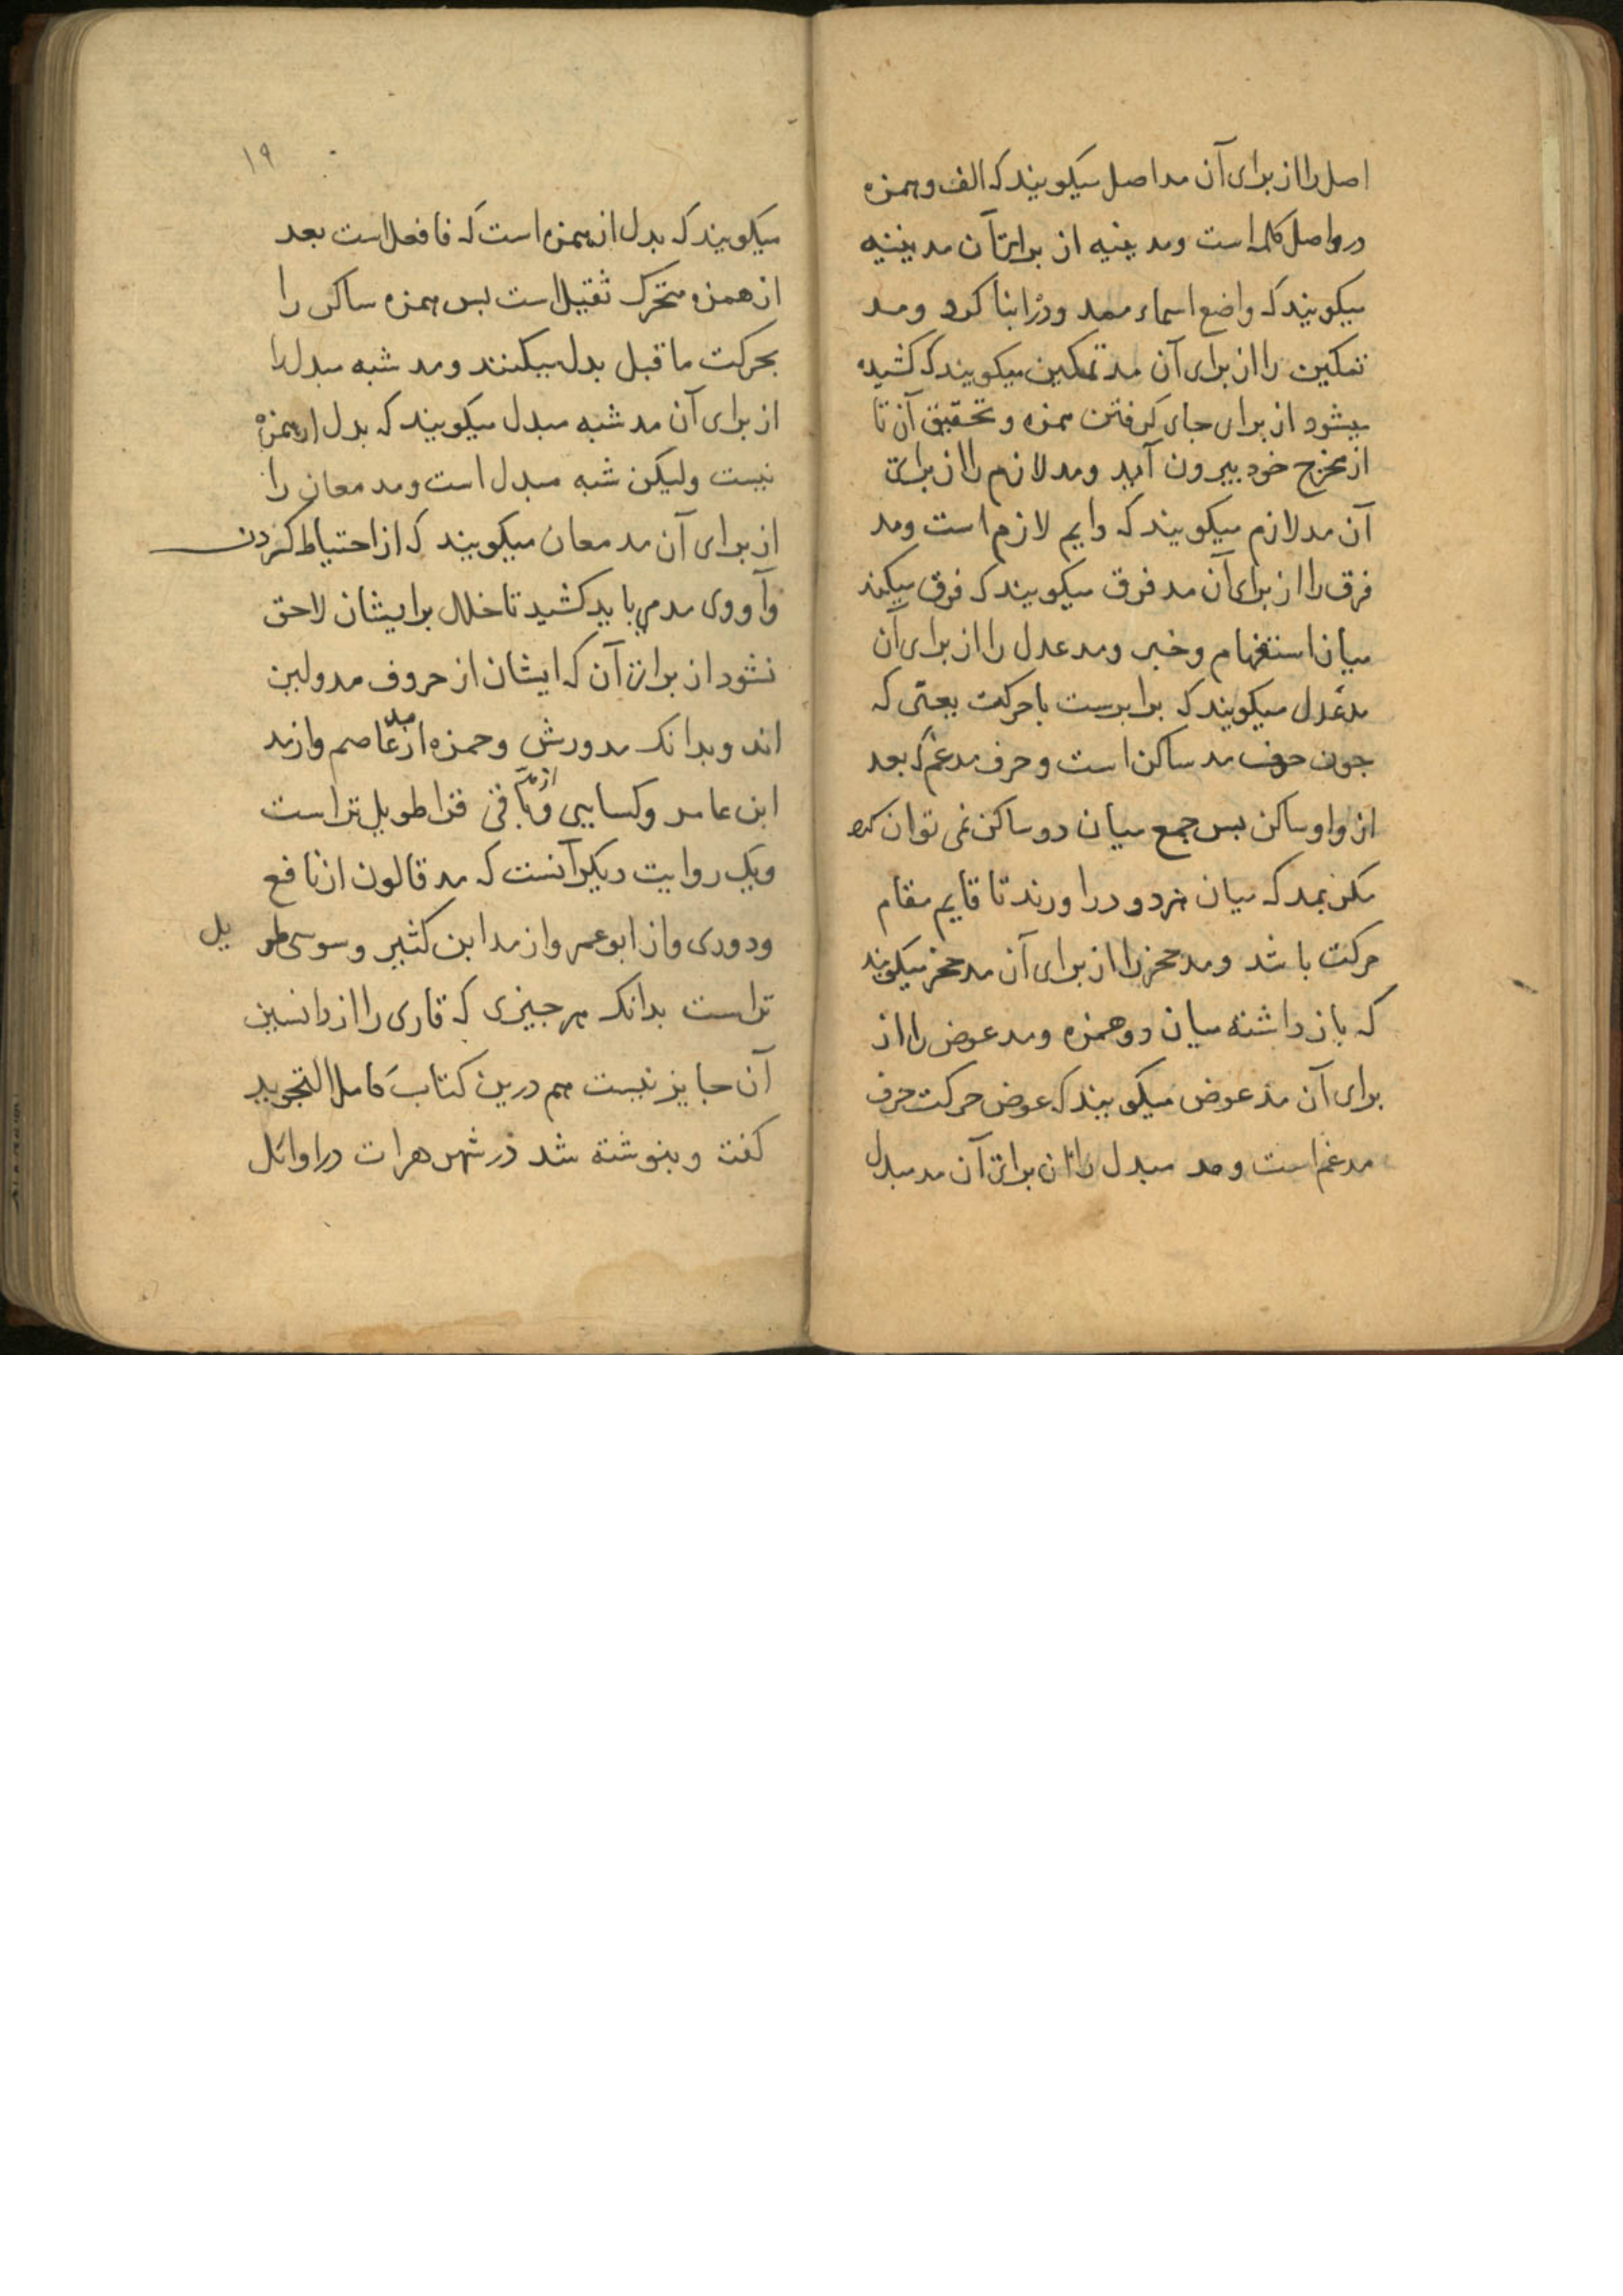 اصل را از برای آن مد اصل میکویند که الف و همزه
در واصل کلمه است و مد بنیه از برای آن مد بنیه
میکویند که واضع اسماء ممد ودرا بنا کرد و مد
تمکین را از برای آن مد تمکین میکویند که کشیده
میشود از برای جای کرفتن همزه و تحقیق آن تا
از مخرج خود بیرون آید و مد لازم را از برای
آن مد لازم میکویند که دایم لازم است و مد
فرق را از برای آن مد فرق میکویند که فرق میکند
میان استفهام و خبر و مد عدل را از برای آن
مد عدل میکویند که برابرست با حرکت یعنی که
جون حرف مد ساکن است و حرف مدغم که بعد
از و او ساکن بس جمع میان دو ساکن نمی توان کرد
مکر بمد که میان هر دو در اورند تا قایم مقام
حرکت باشد و مد حجز را از برای آن مد حجز میکویند
که باز داشته میان دو همزه و مد عوض را از
برای آن مد عوض میکویند که عوض حرکت حرف
مدغم است و مد مبدل را از برای آن مد مبدل
۱۹
میکویند که بدل از همزه است که فا فعل است بعد
از همزه متحرک ثقیل است بس همزه ساکن را
بحرکت ما قبل بدل میکنند و مد شبه مبدل را
از برای آن مد شبه مبدل میکویند که بدل از همزه
نیست ولیکن شبه مبدل است و مد معان را
از برای آن مد معان میکویند که از احتیاط کردن
وآ و وی مد می باید کشید تا خلل برایشان لاحق
نشود از برای آن که ایشان از حروف مد ولین
اند و بدانک مد ورش و حمزه از مد عاصم و از مد
ابن عامر وکسایی و از مد باقی قرا طویل تر است
ویک روایت دیکر آنست که مد قالون از نافع
ودوری و از ابو عمر و از مد ابن کثیر و سوسی طویل
تر است بدانک هر جیزی که قاری را از دانستن
آن جایز نیست هم درین کتاب کامل التجوید
کفت و بنوشته شد در شهر هرات در اوائل